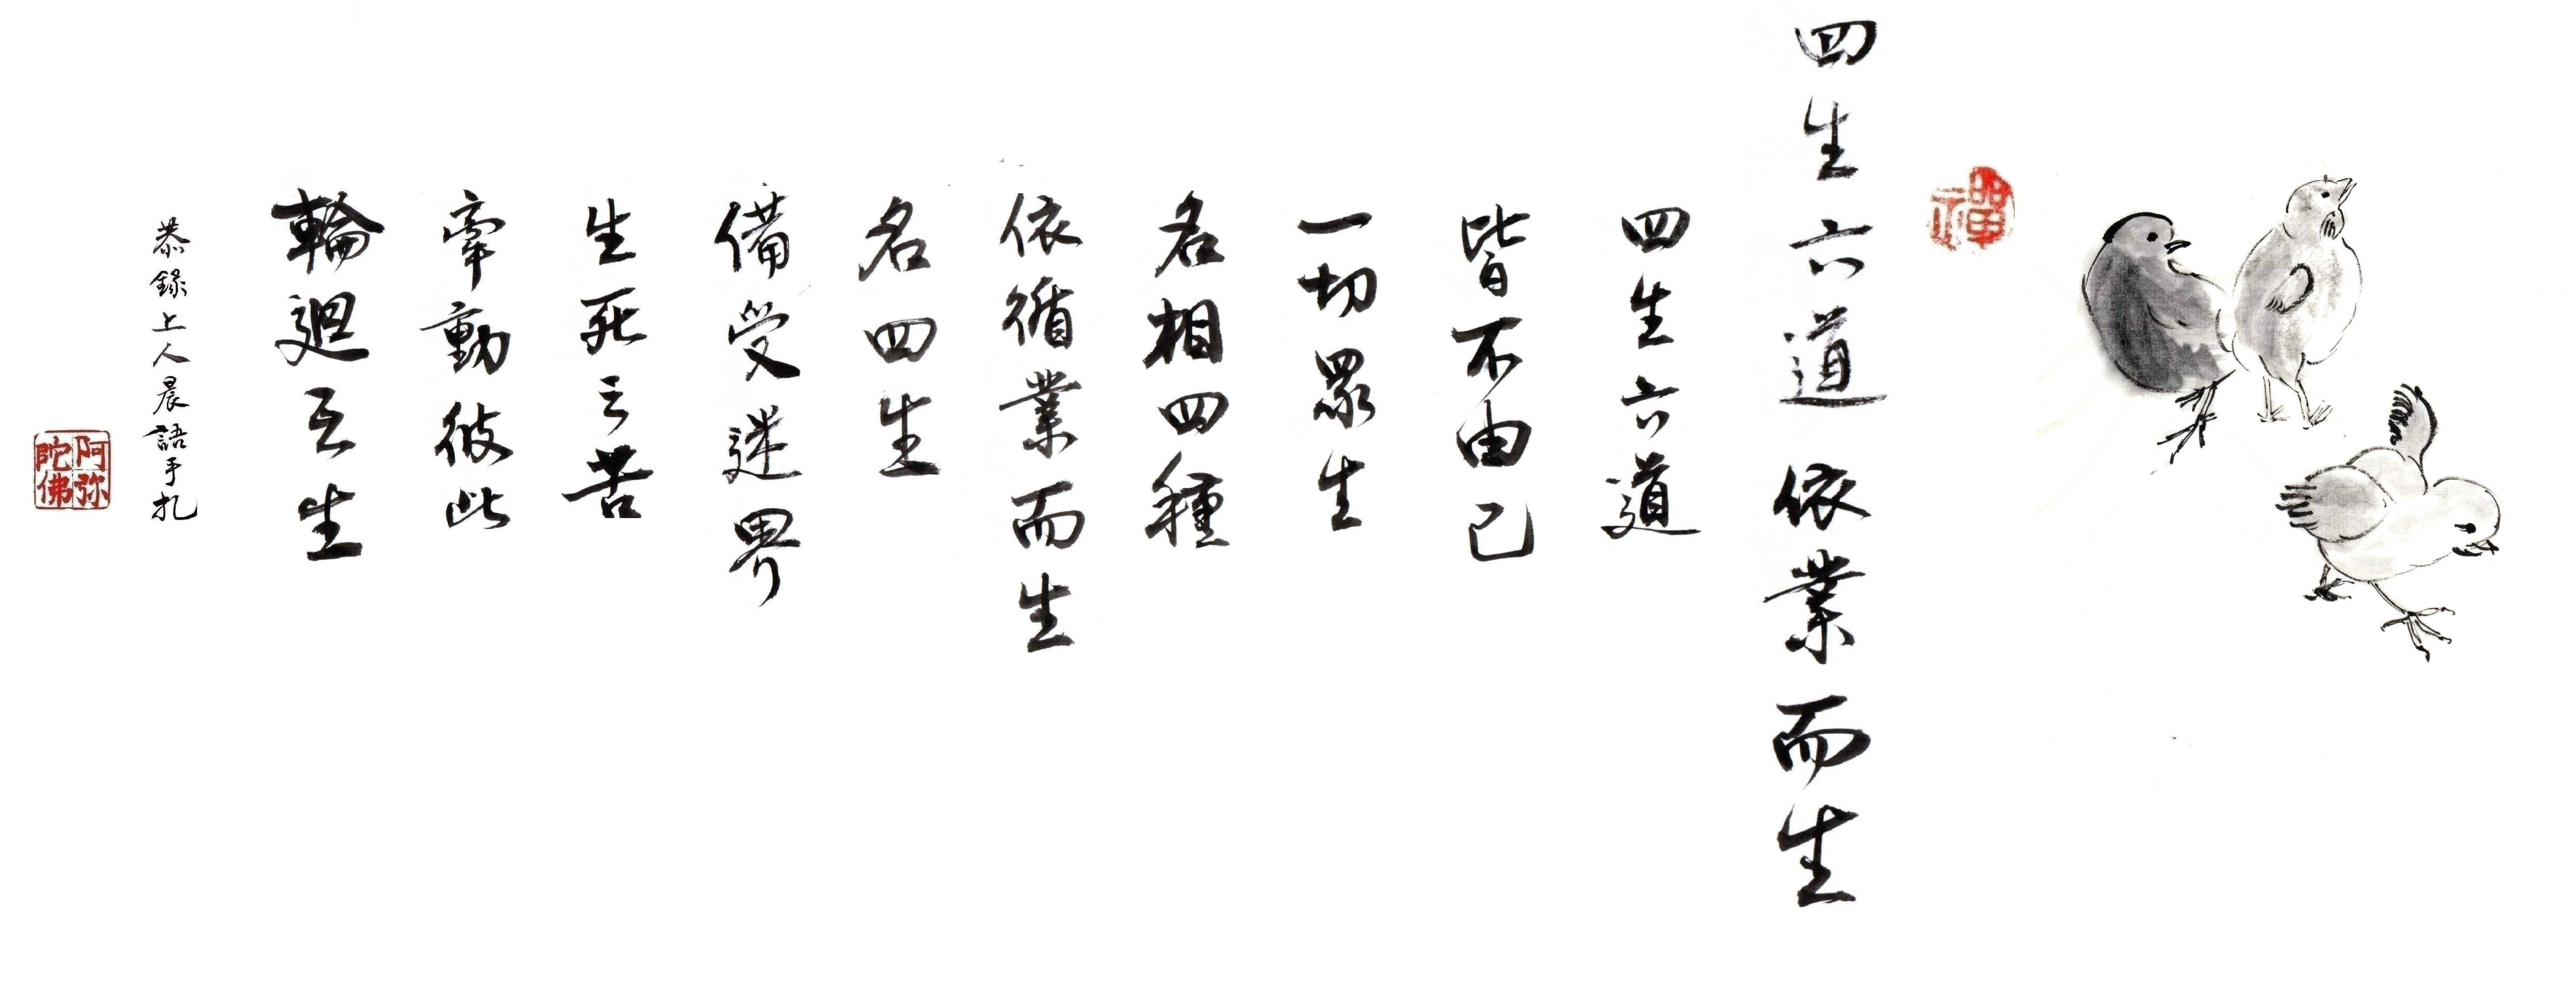 禪
四生六道依業而生
四生六道
皆不由己
一切眾生
名相四種
依循業而生
名四生
備受迷界
生死之苦
牽動彼此
輪迴互生
恭錄上人晨語手札
阿弥
陀佛